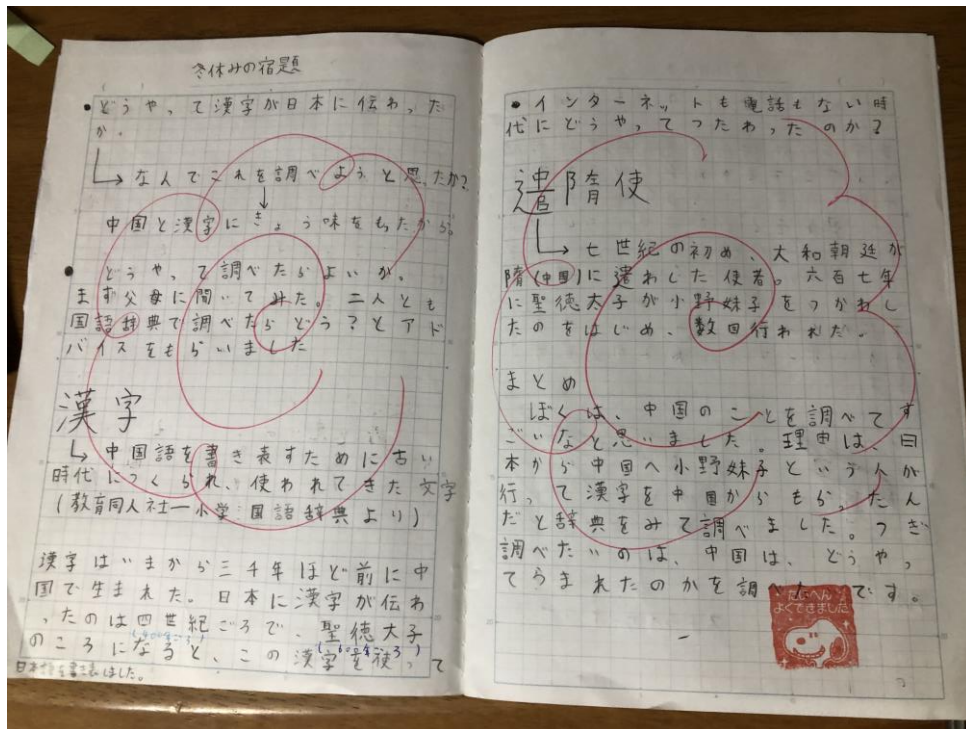 冬休みの宿題
●どうやって漢字が日本に伝わった
か。
→なんでこれを調べようと思ったか?
↓
中国と漢字にきょう味をもったから。
●どうやって調べたらよいか。
まず父母に聞いてみた。二人とも
国語辞典で調べたらどう?とアド
バイスをもらいました
漢字
→中国語を書き表すために古い
時代につくられ、使われてきた文字
(教育同人社ー小学国語辞典より)
漢字はいまから三千年ほど前に中
国で生まれた。日本に漢字が伝わ
ったのは四世紀ごろで、聖徳太子
(400年ごろ)
(600年ごろ)
のころになると、この漢字を使って
日本語を書き表しました。
●インターネットも電話もない時
代にどうやってつたわったのか?
遣隋使
→七世紀の初め、大和朝廷が
隋(中国)に遣わした使者。六百七年
に聖徳太子が小野妹子をつかわし
たのをはじめ、数回行われた。
まとめ
ぼくは、中国のことを調べてす
ごいなと思いました。理由は、日
本から中国へ小野妹子という人が
行って漢字を中国からもらったん
だと辞典をみて調べました。つぎ
調べたいのは、中国は、どうやっ
てうまれたのかを調べ です。
たいへん
よくできました